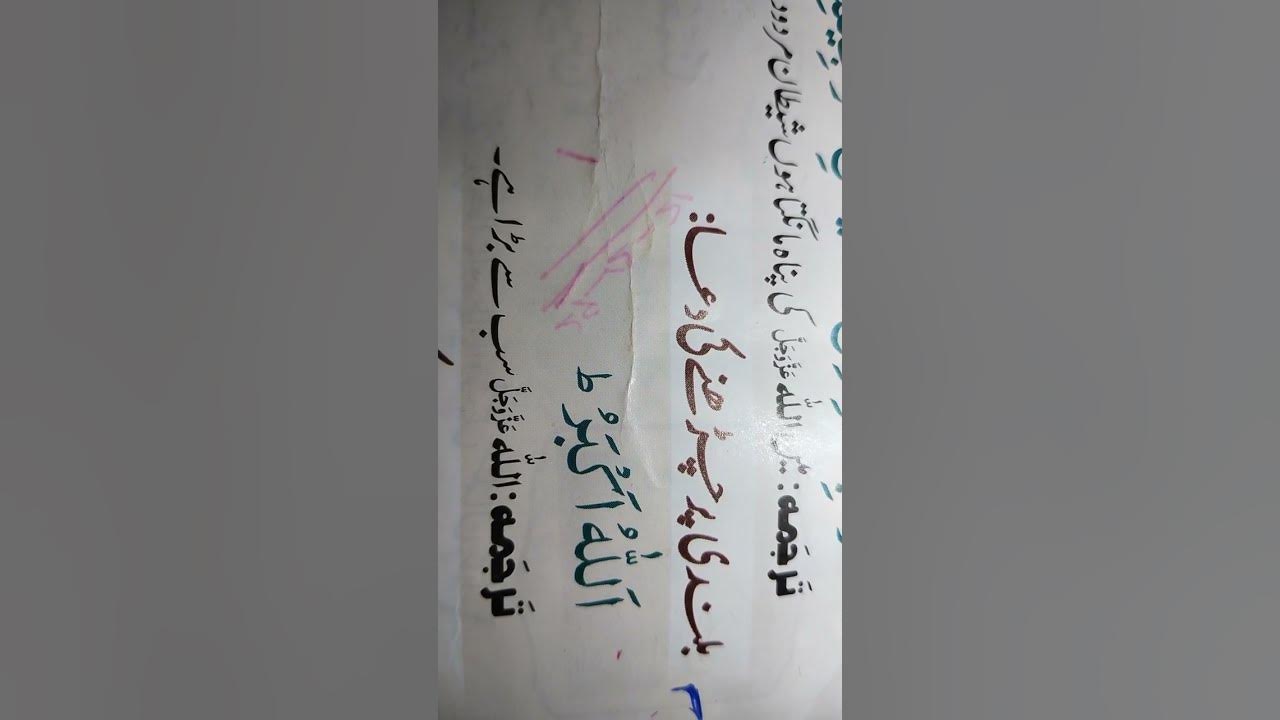 ترجَمہ: میں اللہ عَزَّوَجَلَّ کی پناہ مانگتا ہوں شیطان مردود
بلندی پر چڑھنے کی دعا:
اَللّٰهُ اَكْبَرُ ط
ترجَمہ: اللہ عَزَّوَجَلَّ سب سے بڑا ہے۔